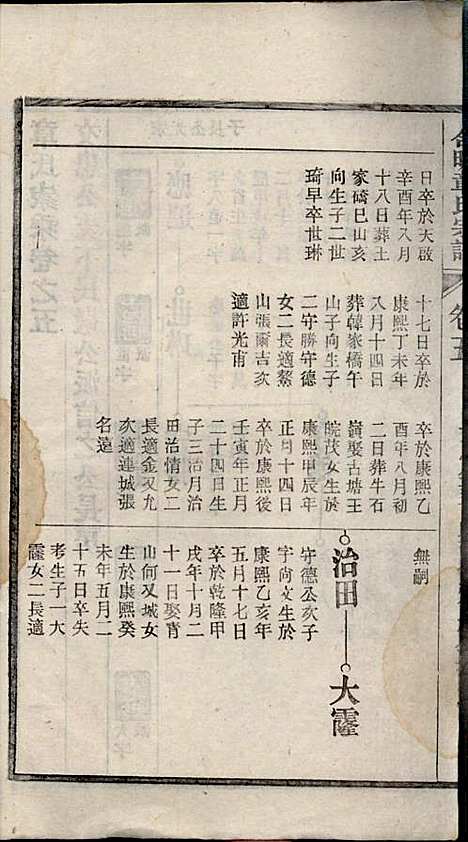 卷五
日卒於天啟
辛酉年八月
十八日葬土
家磅巳山亥
向生子二世
琦早卒世琳
十七日卒於
康熙丁未年
八月十四日
葬韓家橋午
山子向生子
二守勝守德
女二長適鰲
山張爾吉次
適許光甫
卒於康熙乙
酉年八月初
二日葬牛石
嶺娶古塘王
皖茂女生於
康熙甲辰年
正月十四日
卒於康熙
壬寅年正月
二十四日生
子三治月治
田治情女二
長適金双允
次適連城張
名遠
無嗣
治田——大霳
守德公次子
字尚文生於
康熙乙亥年
五月十七日
卒於乾隆甲
戌年十月二
十一日娶宵
山何又城女
生於康熙癸
未年五月二
十五日卒失
考生子一大
霳女二長適